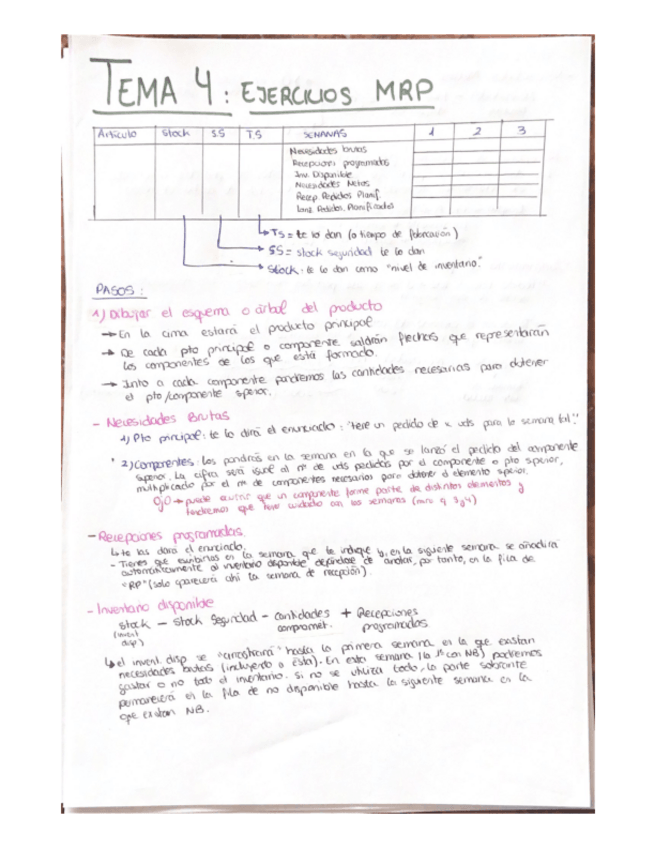 TEMA 4: EJERCICIOS MRP
Artículo Stock S.S T.S SEMANAS 1 2 3
Necesidades brutas
Recepciones programadas
Inv. Disponible
Necesidades Netas
Recep. Pedidos Planif.
Lanz. Pedidos. Planificados
TS = te lo dan (o tiempo de fabricación)
SS = stock seguridad te lo dan
Stock: te lo dan como "nivel de inventario."
PASOS:
1) Dibujar el esquema o árbol del producto
→ En la cima estará el producto principal.
→ De cada pto principal o componente saldrán flechas que representarán
los componentes de los que está formado.
→ Junto a cada componente pondremos las cantidades necesarias para obtener
el pto/componente superior.
- Necesidades Brutas
1) Pto principal: te lo dirá el enunciado: "tiene un pedido de x uds para la semana tal".
2) Componentes: los pondrás en la semana en la que se lanzó el pedido del componente
superior. La cifra será igual al nº de uds pedidas por el componente o pto superior,
multiplicado por el nº de componentes necesarios para obtener el elemento superior.
OJO → puede ocurrir que un componente forme parte de distintos elementos y
tendremos que tener cuidado con las semanas
- Recepciones programadas
te las dará el enunciado.
- Tienes que escribirlas en la semana que te indique y, en la siguiente semana se añadirá
automáticamente al inventario disponible dejándose de anotar, por tanto, en la fila de
"RP" (solo aparecerá ahí la semana de recepción).
- Inventario disponible
stock - stock Seguridad - cantidades + Recepciones
(invent. disp.) compromet. programadas
el invent. disp se "arrastrará" hasta la primera semana en la que existan
necesidades brutas (incluyendo a ésta). En esta semana (la 1ª con NB) podremos
gastar o no todo el inventario. Si no se utiliza todo, la parte sobrante
permanecerá en la fila de no disponible hasta la siguiente semana en la
que existan NB.